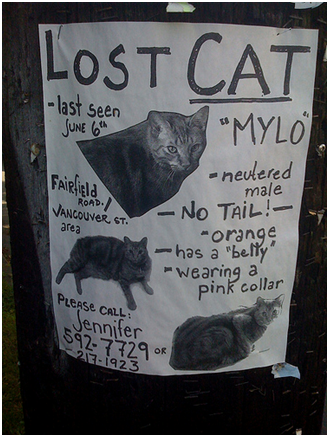 LOST CAT
-last seen
JUNE 6th
"MYLO"
-neutered
male
Fairfield
ROAD./
VANCOUVER ST.
area
-NO TAIL!-
-orange
-has a "belly"
-wearing a
pink collar
PLEASE CALL:
Jennifer
592-7729 OR
-217-1923